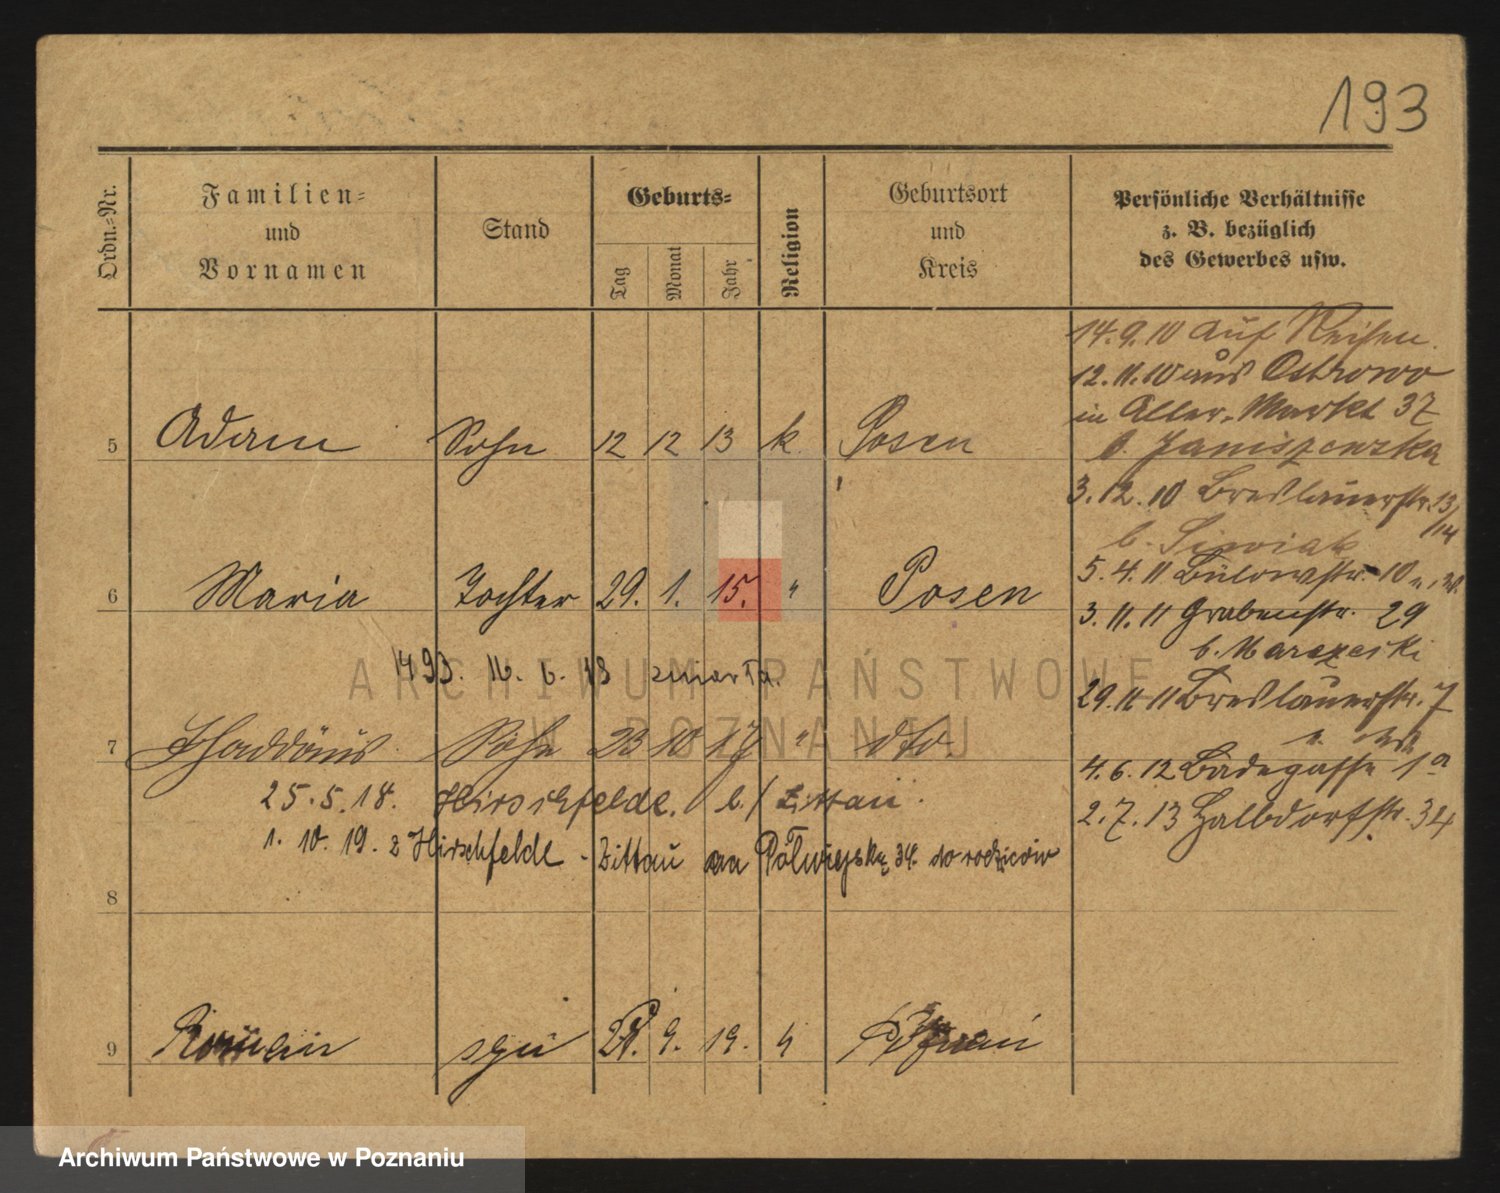 193
Ordn.=Nr.
Familien=
und
Vornamen
Stand
Geburts=
Tag
Monat
Jahr
Religion
Geburtsort
und
Kreis
Persönliche Verhältnisse
z. B. bezüglich
des Gewerbes usw.
5 Adam Sohn 12 12 13 k. Posen
6 Maria Tochter 29. 1. 15. " Posen
1493. 16. 6. 18 zmarła.
7 Thaddäus Sohn 23 10 17 " dto.
25.5.18. Hirschfelde. b./Zittau.
1. 10. 19. z Hirschfelde - Zittau na Półwiejską 34. do rodziców
8
9 Roman syn 9. 19. Poznań
14.9.10 auf Reisen.
12.11.10 aus Ostrowo
in Alter-Markt 37
b. Janiszewska
3.12.10 Breslauerstr. 13/14
b. Siwiak
5.4.11 Bülowstr. 10
3.11.11 Grabenstr. 29
b. Marczeski
29.11.11 Breslauerstr. 7
4.6.12 Badegasse 1a
2.7.13 Halbdorfstr. 34
ARCHIWUM PAŃSTWOWE
W POZNANIU
Archiwum Państwowe w Poznaniu